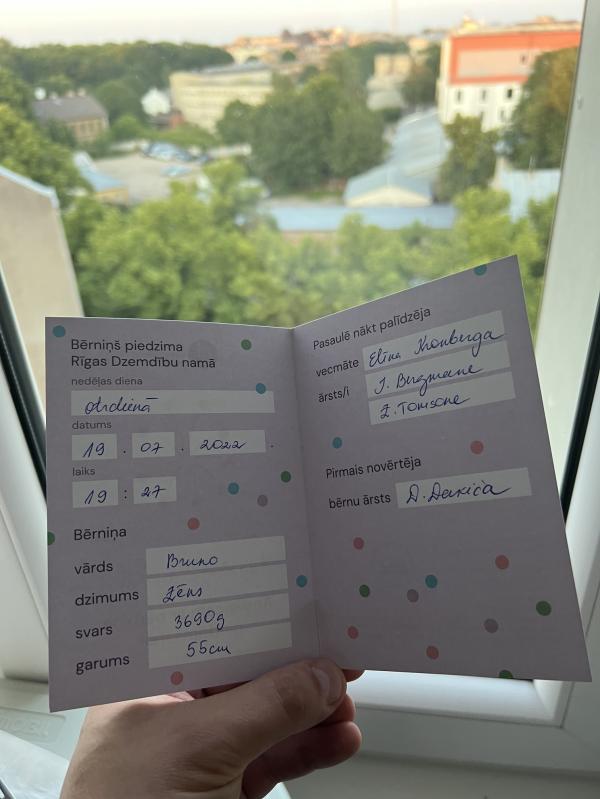 Bērniņš piedzima
Rīgas Dzemdību namā
nedēļas diena
otrdienā
datums
19 . 07 . 2022 .
laiks
19 : 27
Bērniņa
vārds Bruno
dzimums Zēns
svars 3690g
garums 55cm
Pasaulē nākt palīdzēja
vecmāte Elīna Kronberga
ārsts/i I. Bergmane
Z. Tomsone
Pirmais novērtēja
bērnu ārsts D.